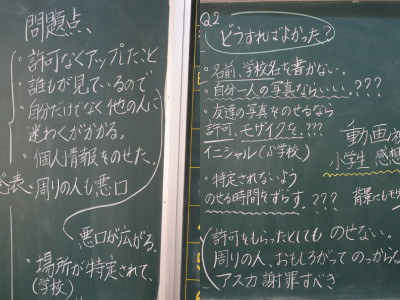 問題点、
・許可なくアップしたこと
誰もが見ているので
・自分だけでなく他の人に
迷わくがかかる。
・個人情報をのせた。
発表
周りの人も悪口
悪口が広がる。
・場所が特定されて、
(学校)
Q2
どうすればよかった?
・名前、学校名を書かない。
・自分一人の写真ならいい。???
・友達の写真をのせるなら
許可、モザイクを。???
イニシャル(〃学校)
・特定されないよう
のせる時間をずらす。???
動画
小学生 感想
背景
許可をもらったとしても のせない。
周りの人、おもしろがって のっから
アスカ 謝罪すべき